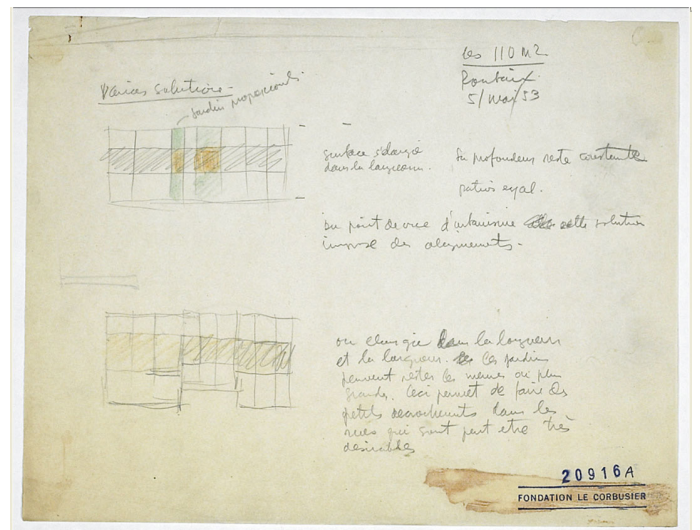 Les 110 M2
Roubaix
5/Mai/53
Varies solutions -
Jardin proportionnels.
surface s'élargie
dans la longueur.
La profondeur reste constante
patios egal.
Du point de vue d'urbanisme cette solution
impose des alignements -
on elargie dans la longueur
et la largeur. les jardins
peuvent rester les memes ou plus
grands. Ceci permet de faire des
petits decrochements dans les
rues qui sont peut etre très
desirables
20916A
FONDATION LE CORBUSIER